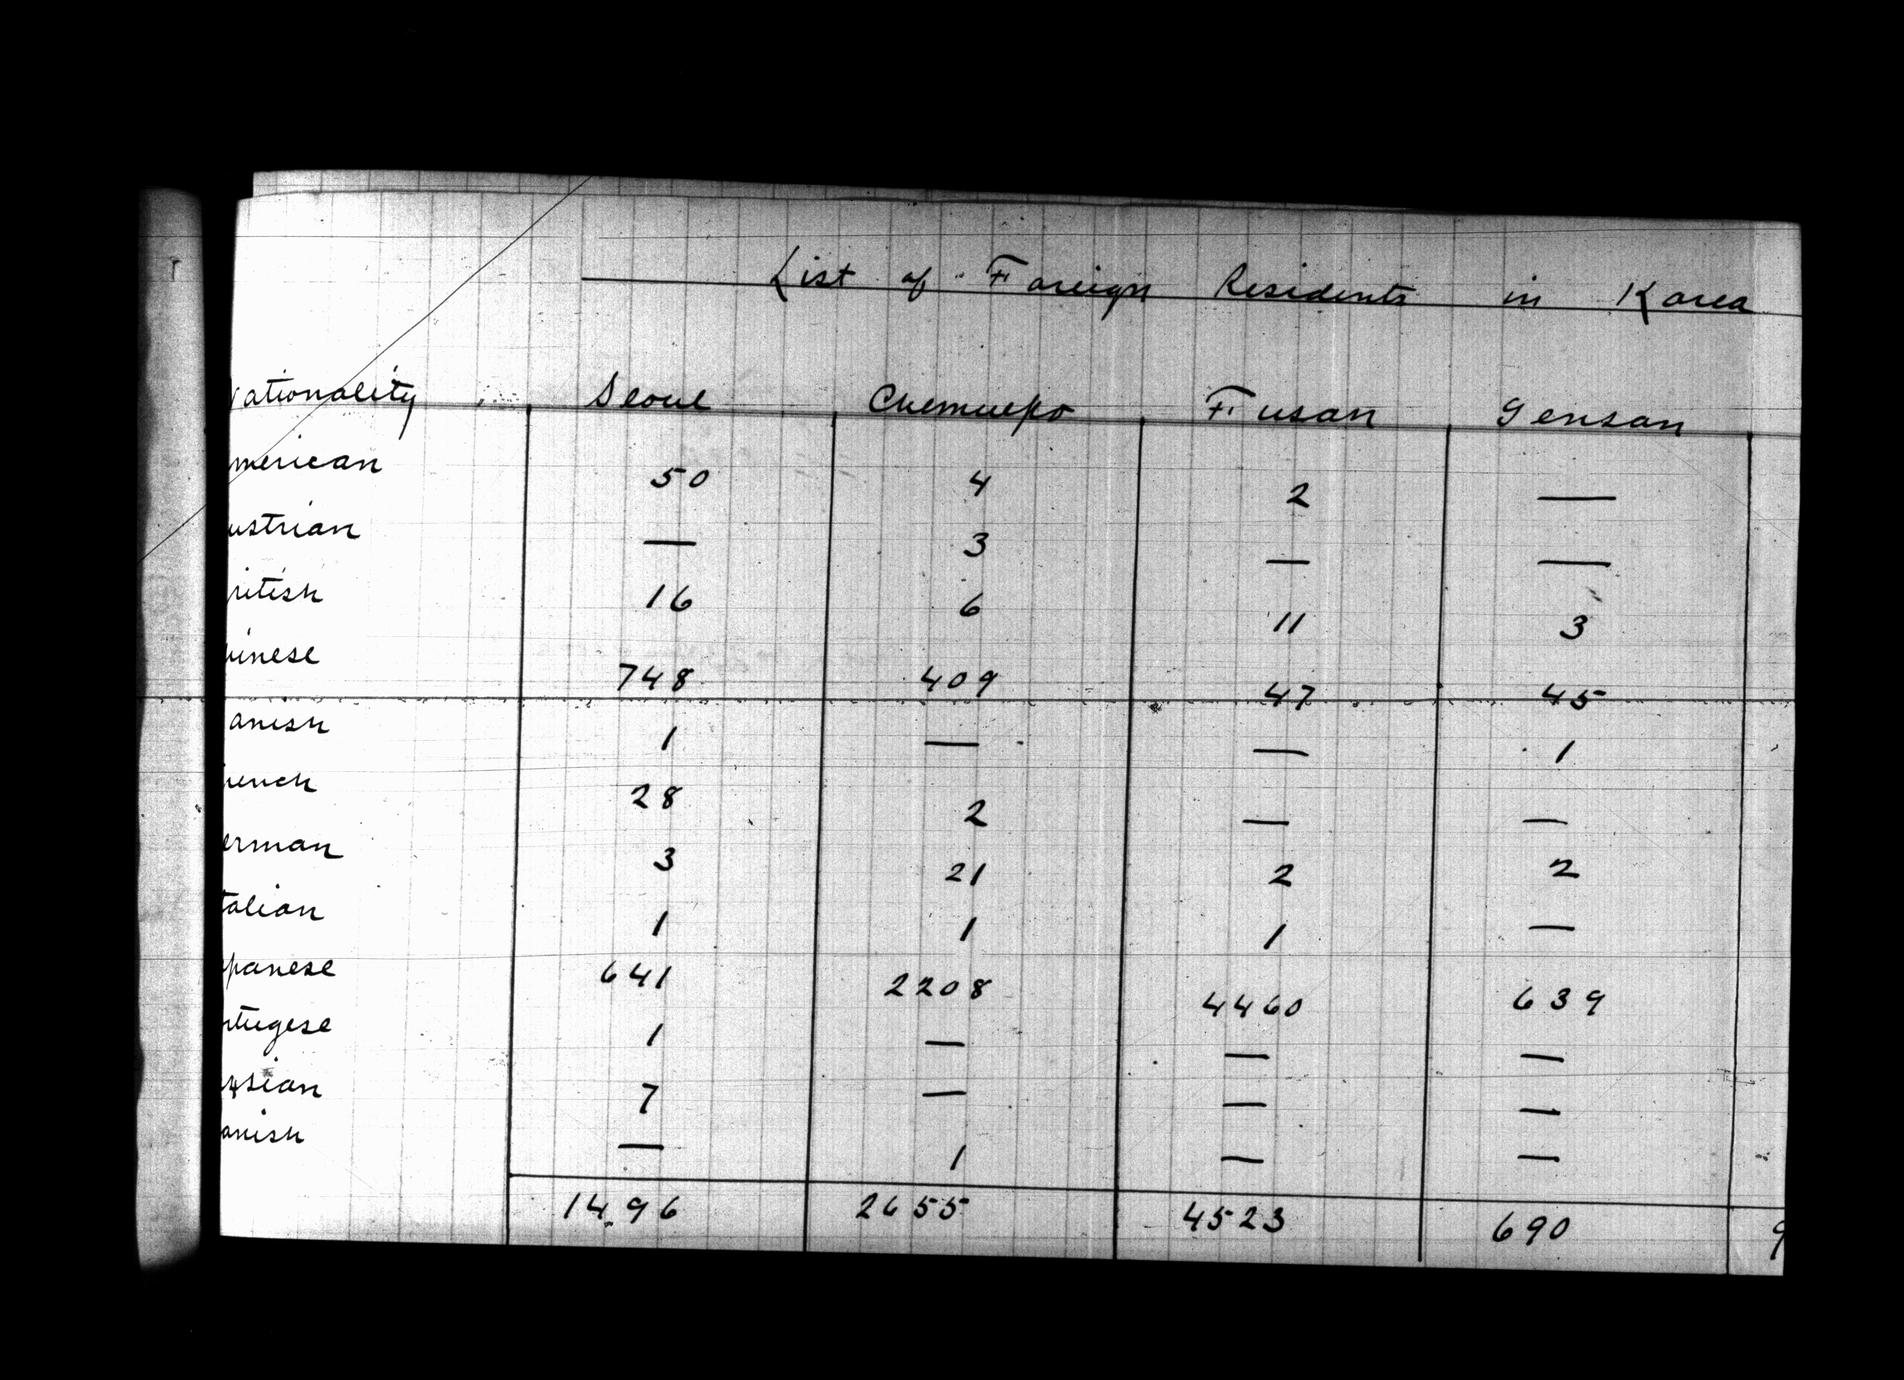 List of Foreign Residents in Korea
Nationality Seoul Chemulpo Fusan Gensan
merican 50 4 2 —
ustrian — 3 — —
ritish 16 6 11 3
hinese 748 409 47 45
anish 1 — — 1
rench 28 2 — —
erman 3 21 2 2
talian 1 1 1 —
apanese 641 2208 4460 639
rtugese 1 — — —
ussian 7 — — —
anish — 1 — —
1496 2655 4523 690 9